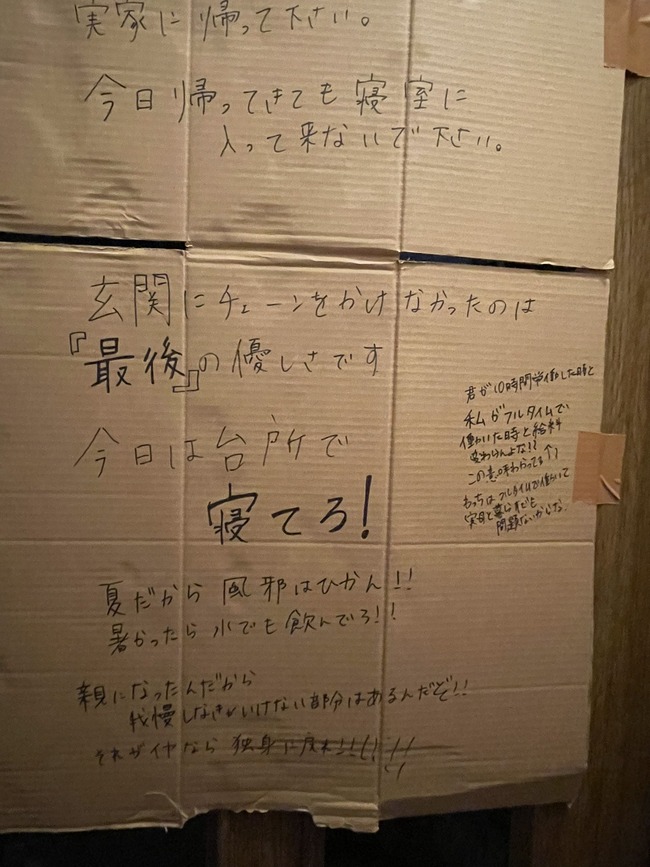 実家に帰って下さい。
今日帰ってきても寝室に
入って来ないで下さい。
玄関にチェーンをかけなかったのは
『最後』の優しさです
今日は台所で
寝てろ!
夏だから風邪はひかん!!
暑かったら水でも飲んでろ!!
親になったんだから
我慢しなきゃいけない部分はあるんだぞ!!
それがイヤなら独身に戻れ!!!!!!
君が10時間労働した時と
私がフルタイムで
働いた時と給料
変わらんよな!?
この意味わかってる↑?
わっちはフルタイムで働いて
実母と暮らすでも
問題ないからな